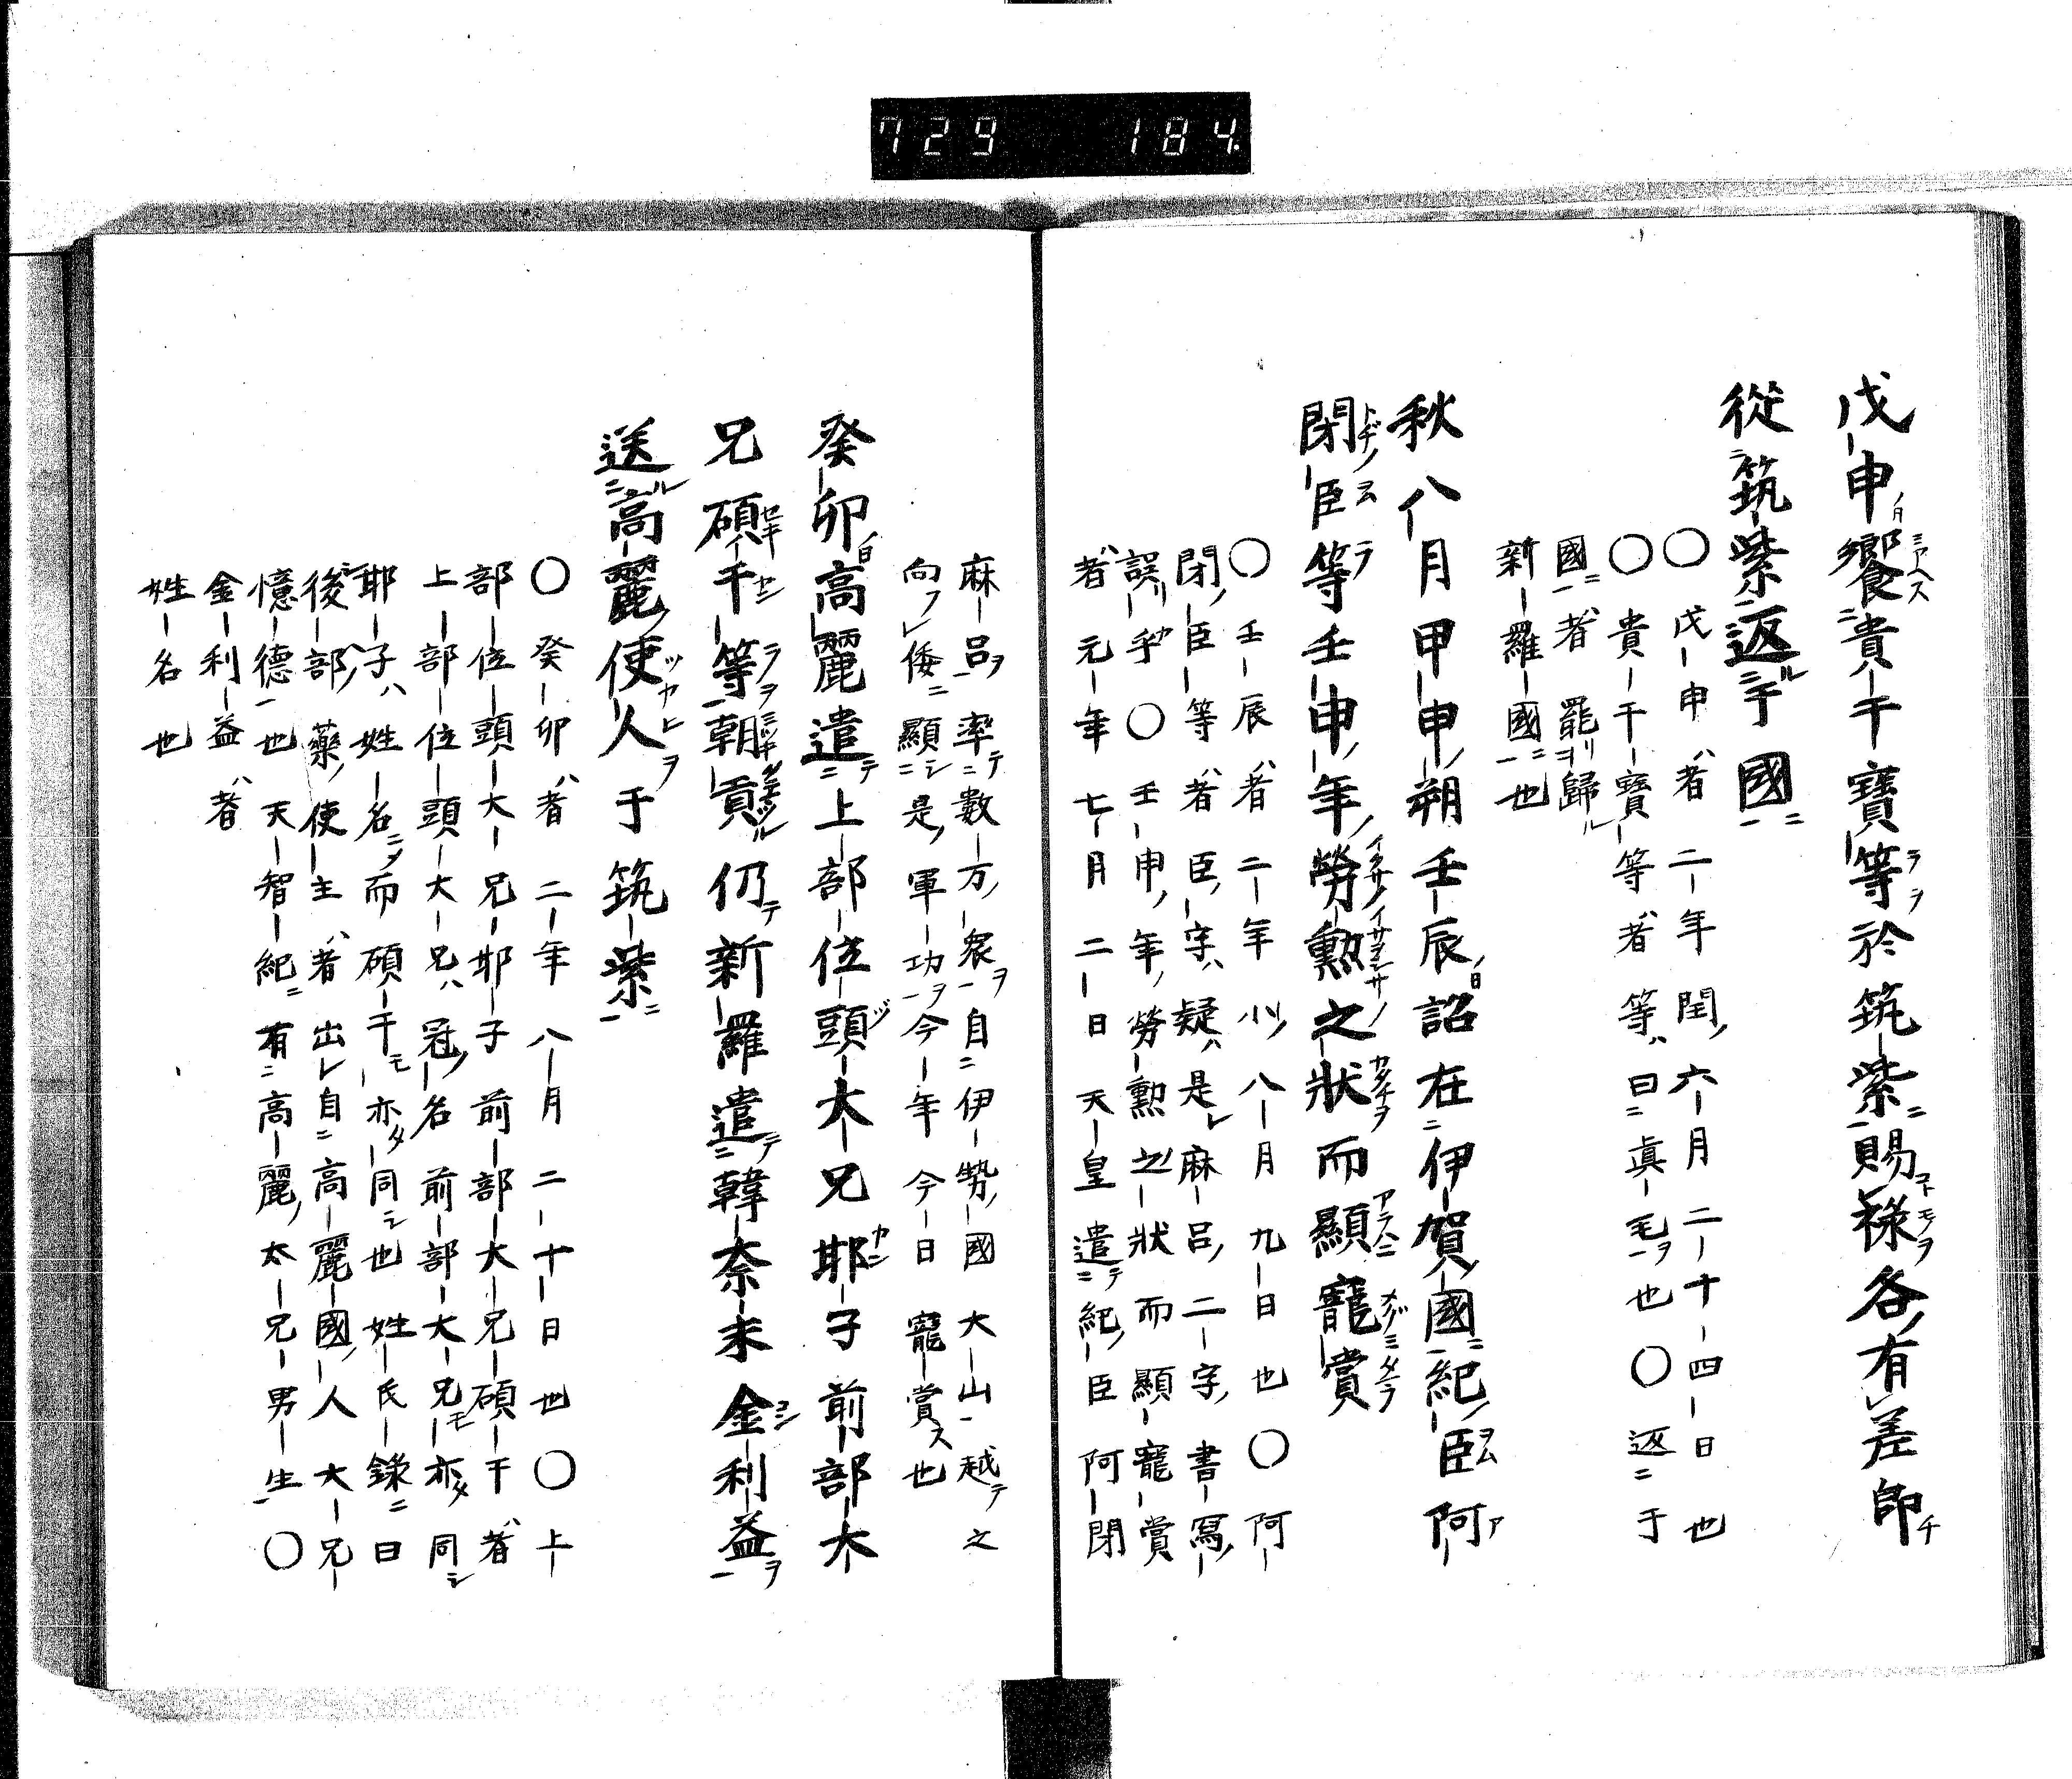 729 184
戊申饗貴干寶等於筑紫賜祿各有差即
從筑紫返于國
〇戊申者二年閏六月二十四日也
〇貴干寶等者等曰眞毛也〇返于
國者罷歸
新羅國也
秋八月甲申朔壬辰詔在伊賀國紀臣阿
閉臣等壬申年勞勲之狀而顯寵賞
〇壬辰者二年八月九日也〇阿
閉臣等者臣字疑是麻呂二字書寫
誤乎〇壬申年勞勲之狀而顯寵賞
者元年七月二日天皇遣紀臣阿閉
麻呂率數万衆自伊勢國大山越之
向倭顯是軍功今年今日寵賞也
癸卯高麗遣上部位頭大兄耶子前部大
兄碩干等朝貢仍新羅遣韓奈末金利益
送高麗使人于筑紫
〇癸卯者二年八月二十日也〇上
部位頭大兄耶子前部大兄碩干者
上部位頭大兄冠名前部大兄亦同
耶子姓名而碩干亦同也姓氏錄曰
後部藥使主者出自高麗國人大兄
憶德也天智紀有高麗太兄男生〇
金利益者
姓名也